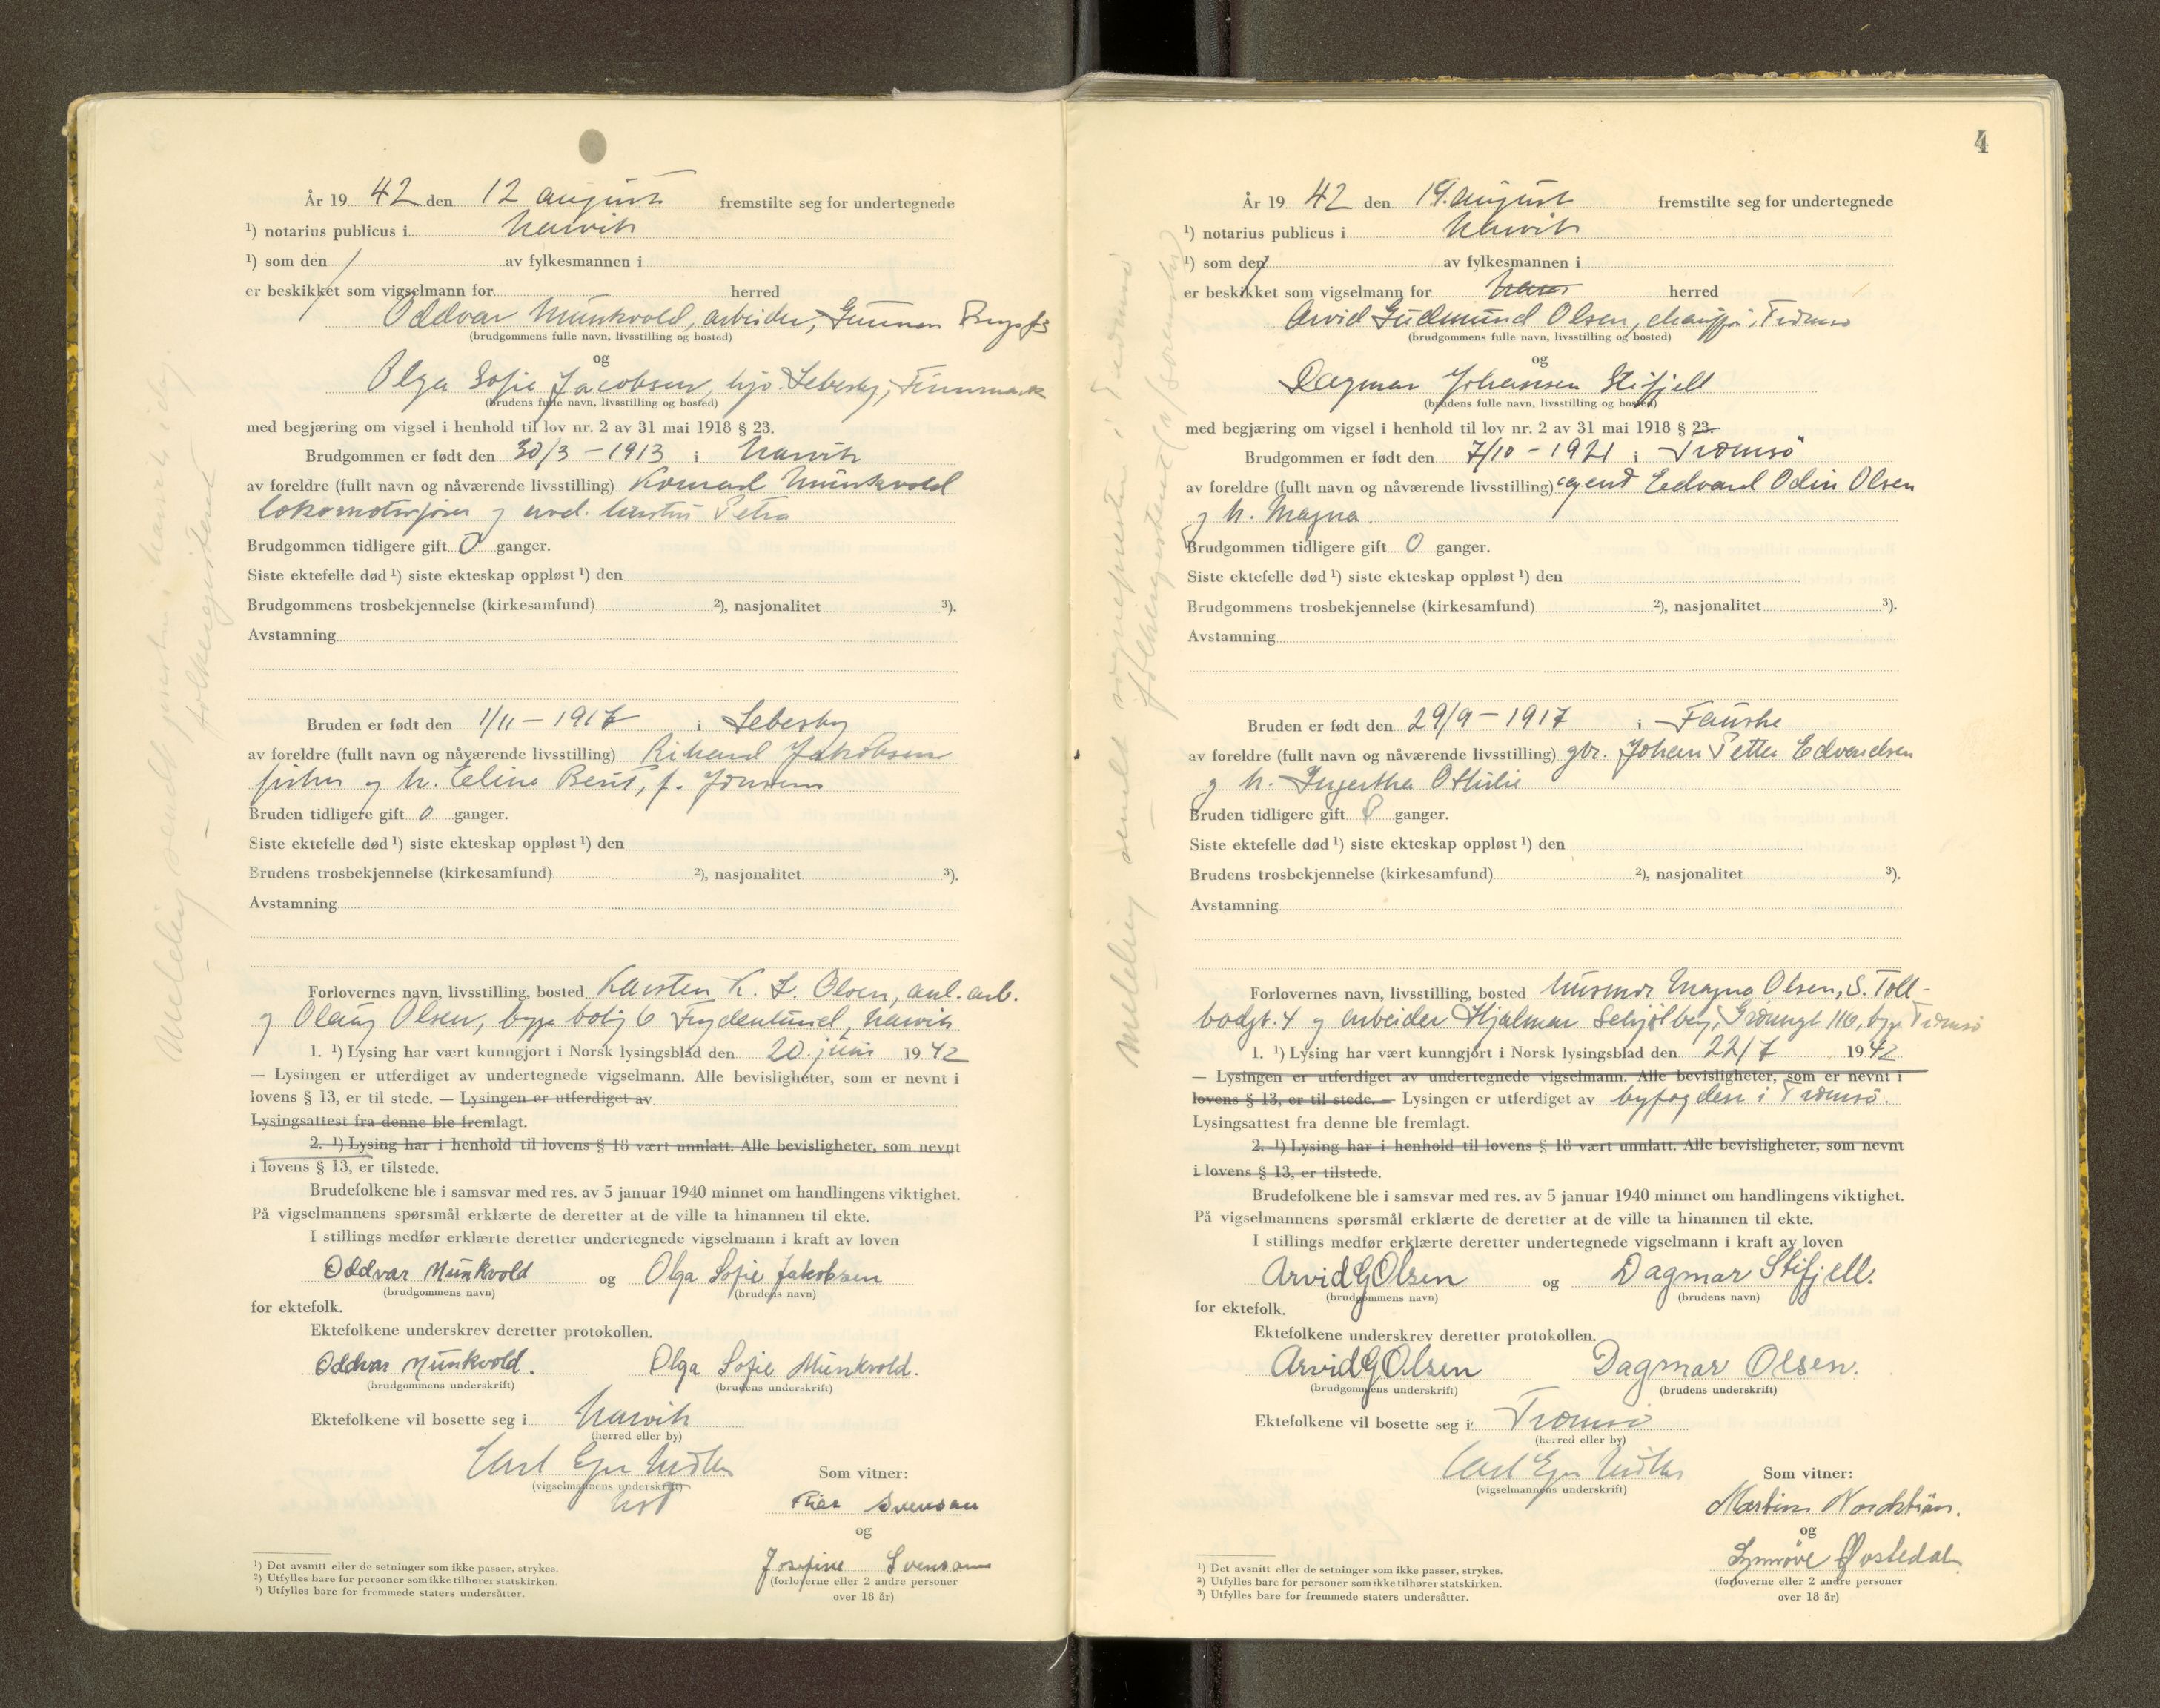 År 1942 den 12 august fremstilte seg for undertegnede
¹) notarius publicus i Narvik
¹) som den av fylkesmannen i
er beskikket som vigselmann for herred
Oddvar Munkvold, arbeider, Gunnar
(brudgommens fulle navn, livsstilling og bosted)
og
Olga Sofie Jacobsen, hjv. Lebesby, Finnmark
(brudens fulle navn, livsstilling og bosted)
med begjæring om vigsel i henhold til lov nr. 2 av 31 mai 1918 § 23.
Brudgommen er født den 30/3 – 1913 i Narvik
av foreldre (fullt navn og nåværende livsstilling) Konrad Munkvold
lokomotivfører og avd. hustru Petra
Brudgommen tidligere gift 0 ganger.
Siste ektefelle død ¹) siste ekteskap oppløst ¹) den
Brudgommens trosbekjennelse (kirkesamfund) ²), nasjonalitet ³).
Avstamning
Bruden er født den 1/11 – 1917 i Lebesby
av foreldre (fullt navn og nåværende livsstilling) Rikard Jakobsen
fisker og h. Eline Berit, f. Jonsen
Bruden tidligere gift 0 ganger.
Siste ektefelle død ¹) siste ekteskap oppløst ¹) den
Brudens trosbekjennelse (kirkesamfund) ²), nasjonalitet ³).
Avstamning
Forlovernes navn, livsstilling, bosted Karsten K. L. Olsen, anl. arb.
og Olaug Olsen, begge bolig 6 Frydenlund, Narvik
1. ¹) Lysing har vært kunngjort i Norsk lysingsblad den 20. juni 1942
— Lysingen er utferdiget av undertegnede vigselmann. Alle bevisligheter, som er nevnt i
lovens § 13, er til stede. — Lysingen er utferdiget av
Lysingsattest fra denne ble fremlagt.
2. ¹) Lysing har i henhold til lovens § 18 vært unnlatt. Alle bevisligheter, som nevnt
i lovens § 13, er tilstede.
Brudefolkene ble i samsvar med res. av 5 januar 1940 minnet om handlingens viktighet.
På vigselmannens spørsmål erklærte de deretter at de ville ta hinannen til ekte.
I stillings medfør erklærte deretter undertegnede vigselmann i kraft av loven
Oddvar Munkvold og Olga Sofie Jakobsen
(brudgommens navn) (brudens navn)
for ektefolk.
Ektefolkene underskrev deretter protokollen.
Oddvar Munkvold. Olga Sofie Munkvold.
(brudgommens underskrift) (brudens underskrift)
Ektefolkene vil bosette seg i Narvik
(herred eller by)
Som vitner:
(vigselmannens underskrift)
Svensson
og
Josefine Svensson
(forloverne eller 2 andre personer
over 18 år)
¹) Det avsnitt eller de setninger som ikke passer, strykes.
²) Utfylles bare for personer som ikke tilhører statskirken.
³) Utfylles bare for fremmede staters undersåtter.
Melding sendt presten i Narvik i dag.
folkeregisteret
4
År 1942 den 19. august fremstilte seg for undertegnede
¹) notarius publicus i Narvik
¹) som den av fylkesmannen i
er beskikket som vigselmann for herred
Arvid Gudmund Olsen, chauffør, Tromsø
(brudgommens fulle navn, livsstilling og bosted)
og
Dagmar Johansen Stifjell
(brudens fulle navn, livsstilling og bosted)
med begjæring om vigsel i henhold til lov nr. 2 av 31 mai 1918 § 23.
Brudgommen er født den 7/10 – 1921 i Tromsö
av foreldre (fullt navn og nåværende livsstilling) agent Edvard Odin Olsen
og h. Magna.
Brudgommen tidligere gift 0 ganger.
Siste ektefelle død ¹) siste ekteskap oppløst ¹) den
Brudgommens trosbekjennelse (kirkesamfund) ²), nasjonalitet ³).
Avstamning
Bruden er født den 29/9 – 1917 i Fauske
av foreldre (fullt navn og nåværende livsstilling) gbr. Johan Petter Edvardsen
og h. Ingertha Othilie
Bruden tidligere gift 0 ganger.
Siste ektefelle død ¹) siste ekteskap oppløst ¹) den
Brudens trosbekjennelse (kirkesamfund) ²), nasjonalitet ³).
Avstamning
Forlovernes navn, livsstilling, bosted husmor Magna Olsen, S. Toll-
bodgt. 4 og arbeider Hjalmar Schjølberg, Grønnegt 116, begge Tromsø
1. ¹) Lysing har vært kunngjort i Norsk lysingsblad den 22/7 1942
— Lysingen er utferdiget av undertegnede vigselmann. Alle bevisligheter, som er nevnt i
lovens § 13, er til stede. — Lysingen er utferdiget av byfogden i Tromsö.
Lysingsattest fra denne ble fremlagt.
2. ¹) Lysing har i henhold til lovens § 18 vært unnlatt. Alle bevisligheter, som nevnt
i lovens § 13, er tilstede.
Brudefolkene ble i samsvar med res. av 5 januar 1940 minnet om handlingens viktighet.
På vigselmannens spørsmål erklærte de deretter at de ville ta hinannen til ekte.
I stillings medfør erklærte deretter undertegnede vigselmann i kraft av loven
Arvid G Olsen og Dagmar Stifjell.
(brudgommens navn) (brudens navn)
for ektefolk.
Ektefolkene underskrev deretter protokollen.
Arvid G Olsen Dagmar Olsen.
(brudgommens underskrift) (brudens underskrift)
Ektefolkene vil bosette seg i Tromsö
(herred eller by)
Som vitner:
(vigselmannens underskrift)
Martin Nordstrøm.
og
Synnøve Østedal
(forloverne eller 2 andre personer
over 18 år)
¹) Det avsnitt eller de setninger som ikke passer, strykes.
²) Utfylles bare for personer som ikke tilhører statskirken.
³) Utfylles bare for fremmede staters undersåtter.
Melding sendt sognepresten i Tromsø
folkeregisteret